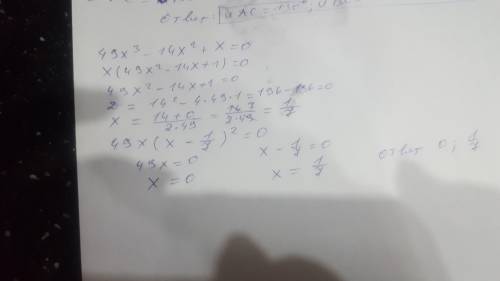 Ответ: ∪AC = 130°, ∪
49x³ - 14x² + x = 0
x(49x² - 14x + 1) = 0
49x² - 14x + 1 = 0
D = 14² - 4·49·1 = 196 - 196 = 0
x = (14 + 0)/(2·49) = 14/(2·49) = 1/7
49x(x - 1/7)² = 0
49x = 0 x - 1/7 = 0 ответ 0; 1/7
x = 0 x = 1/7